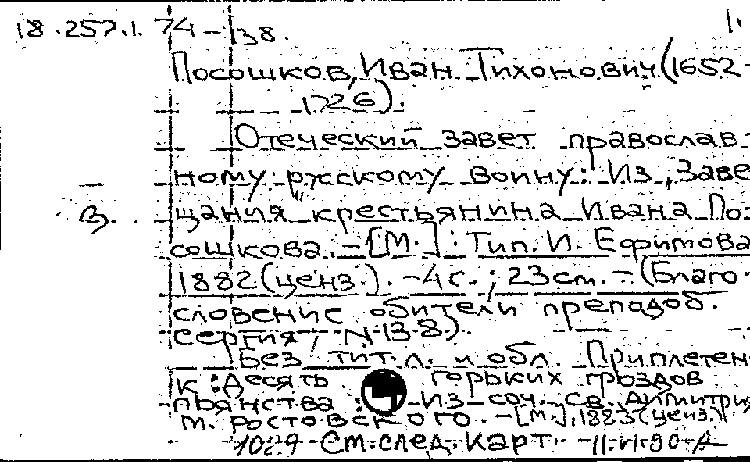 18.257.1.74-138.
1.
Посошков, Иван Тихонович (1652-
1726).
Отеческий завет православ-
ному русскому воину: Из „Заве-
В.
щания крестьянина Ивана По-
сошкова. - [М.]: Тип. И. Ефимова
1882 (ценз.). - 4 с.; 23 см. - (Благо-
словение обители преподоб.
Сергия; N 138).
Без тит. л. и обл. Приплетен
к: Десять горьких гроздов
пьянства: Из соч. св. Димитрия
м. Ростовского. - [М.], 1883 (ценз.)
1029 См. след. карт. 11.VI.90